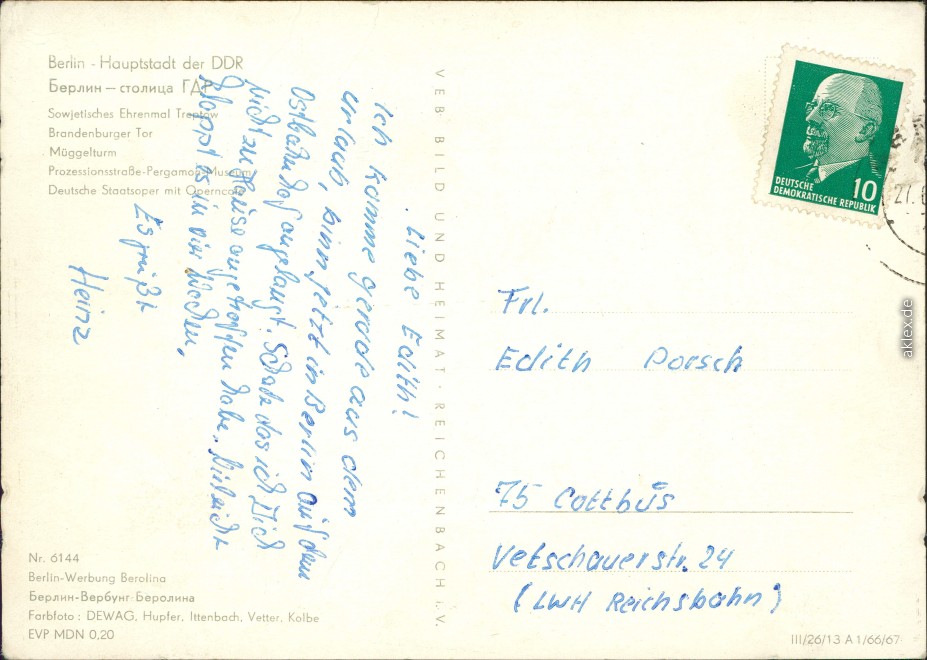 Berlin - Hauptstadt der DDR
Берлин — столица ГДР
Sowjetisches Ehrenmal Treptow
Brandenburger Tor
Müggelturm
Prozessionsstraße-Pergamon-Museum
Deutsche Staatsoper mit Operncafé
Liebe Edith!
Ich komme gerade aus dem
Urlaub, binn jetzt in Berlin auf dem
Ostbahnhof angelangt. Schade das ich Dich
nicht zu Hause angetroffen habe. Vieleicht
klappt es in vier Wochen.
Es grüßt
Heinz
VEB BILD UND HEIMAT · REICHENBACH i.V.
DEUTSCHE
DEMOKRATISCHE REPUBLIK
10
27.
Frl.
Edith Porsch
75 Cottbus
Vetschauerstr. 24
(LWH Reichsbahn)
Nr. 6144
Berlin-Werbung Berolina
Берлин-Вербунг Беролина
Farbfoto : DEWAG, Hupfer, Ittenbach, Vetter, Kolbe
EVP MDN 0,20
III/26/13 A 1/66/67
aklex.de